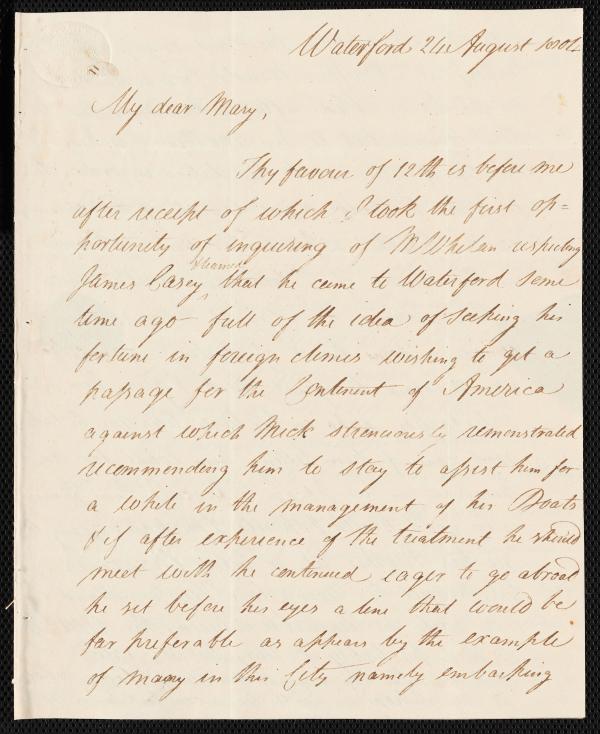 Waterford 24 August 1804
My dear Mary,
Thy favour of 12th is before me
after receipt of which I took the first op=
portunity of inquiring of M Whelan respecting
& learned
James Casey that he came to Waterford some
time ago full of the idea of seeking his
fortune in foreign climes wishing to get a
passage for the Continent of America
against which Mick strenuously remonstrated
recommending him to stay to assist him for
a while in the management of his Boats
& if after experience of the treatment he should
meet with he continued eager to go abroad
he set before his eyes a line that would be
far preferable as appears by the example
of many in this City namely embarking